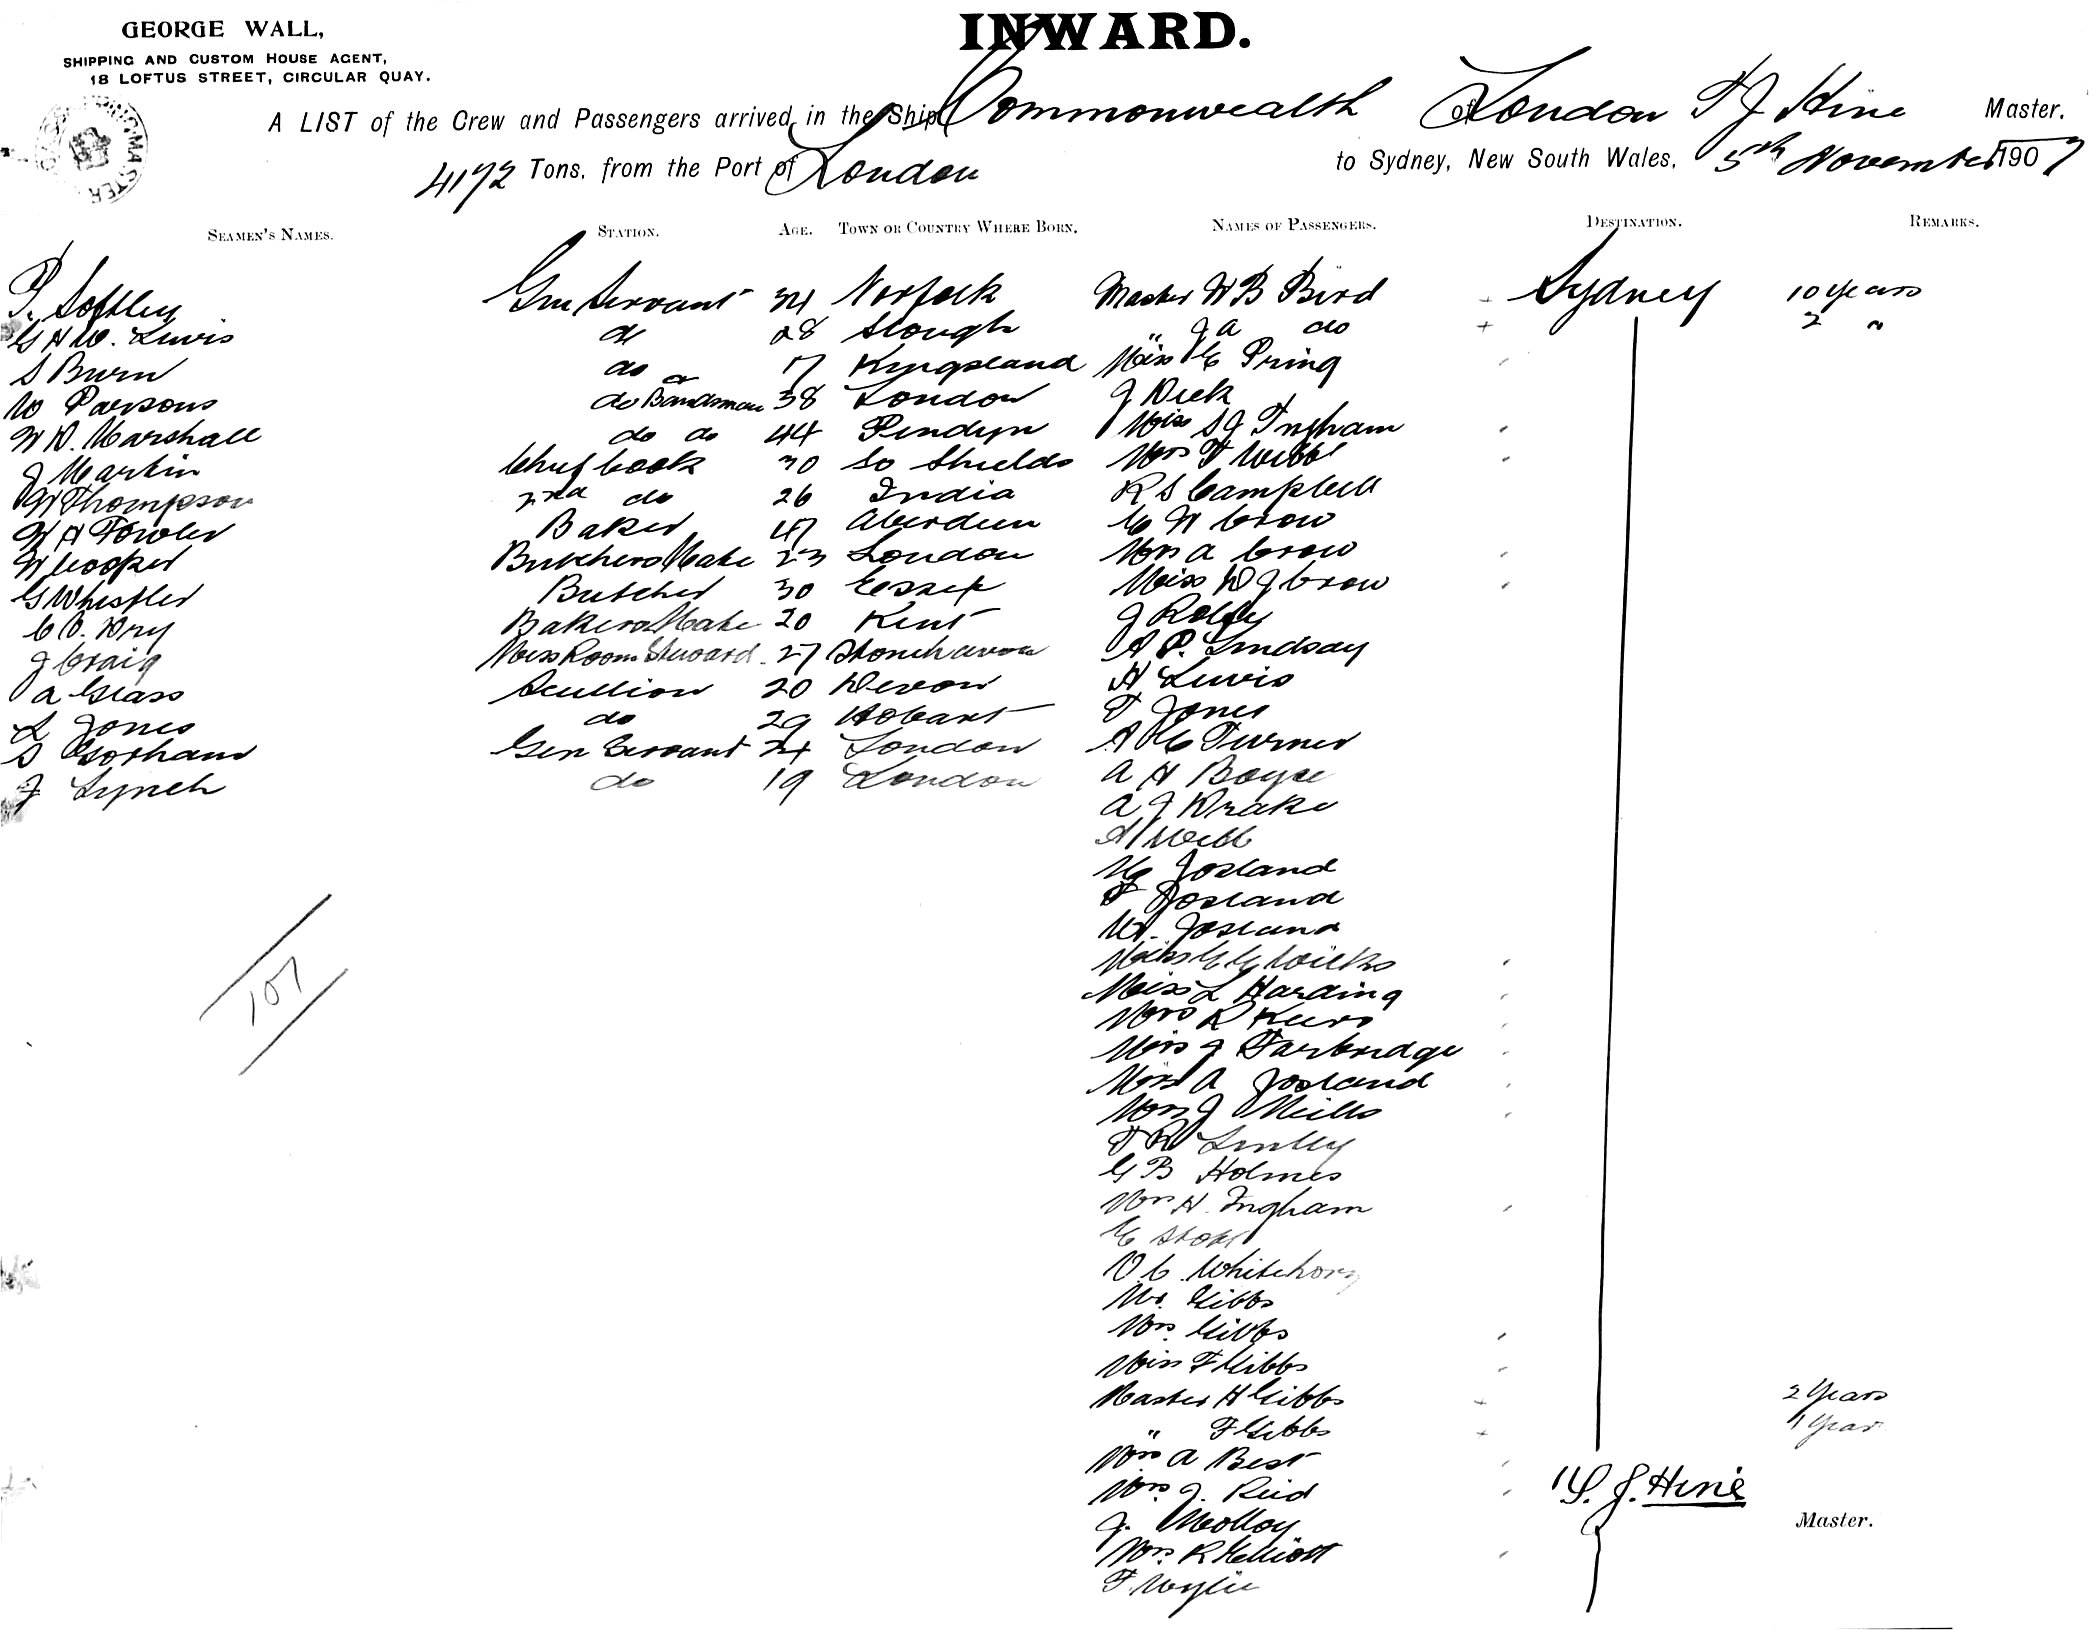 GEORGE WALL,
SHIPPING AND CUSTOM HOUSE AGENT,
18 LOFTUS STREET, CIRCULAR QUAY.
INWARD.
A LIST of the Crew and Passengers arrived in the Ship Commonwealth of London T J Hine Master.
4172 Tons, from the Port of London to Sydney, New South Wales, 5th November 1907
SEAMEN'S NAMES. STATION. AGE. TOWN OR COUNTRY WHERE BORN. NAMES OF PASSENGERS. DESTINATION. REMARKS.
P. Softley Gen Servant 34 Norfolk Master W B Bird + Sydney 10 years
G H W. Lewis do 28 Slough " J A do + 2 "
S Burn do 17 Kingsland Miss E Pring
W Parsons do or Bandsman 38 London J Dick
W D. Marshall do do 44 Penryn Miss S J Ingham
J Martin Chief Cook 30 So Shields Mrs F Webb
W Thompson 2nd do 26 India R S Campbell
W H Fowler Baker 47 Aberdeen E W Crow
W Cooper Butchers Mate 23 London Mrs A Crow
G Whistler Butcher 30 Essex Miss D J Crow
C V. Dry Bakers Mate 20 Kent J Rolfe
J Craig Mess Room Steward. 27 Stonehaven A P. Lindsay
A Glass Scullion 20 Devon H Lewis
L Jones do 29 Hobart T Jones
S Gorham Gen Servant 24 London A E Turner
J Lynch do 19 London A H Boyce
A J Drake
A Webb
Josland
F Josland
W. Josland
Miss E E Wicks
Miss L Harding
Mrs R Keers
Miss J Tarbridge
Miss A Josland
Mrs J Mills
T R Linley
G B Holmes
Mrs H. Ingham
E Stokl
O. C. Whitehorn
Mr. Gibbs
Mrs. Gibbs
Miss F Gibbs
Master H Gibbs + 2 years
" F Gibbs + 1 year
Mrs A Best
Mrs. J. Reid
J. Molloy
Mrs. R Elliott
F. Wylie
107
T. J. Hine
Master.